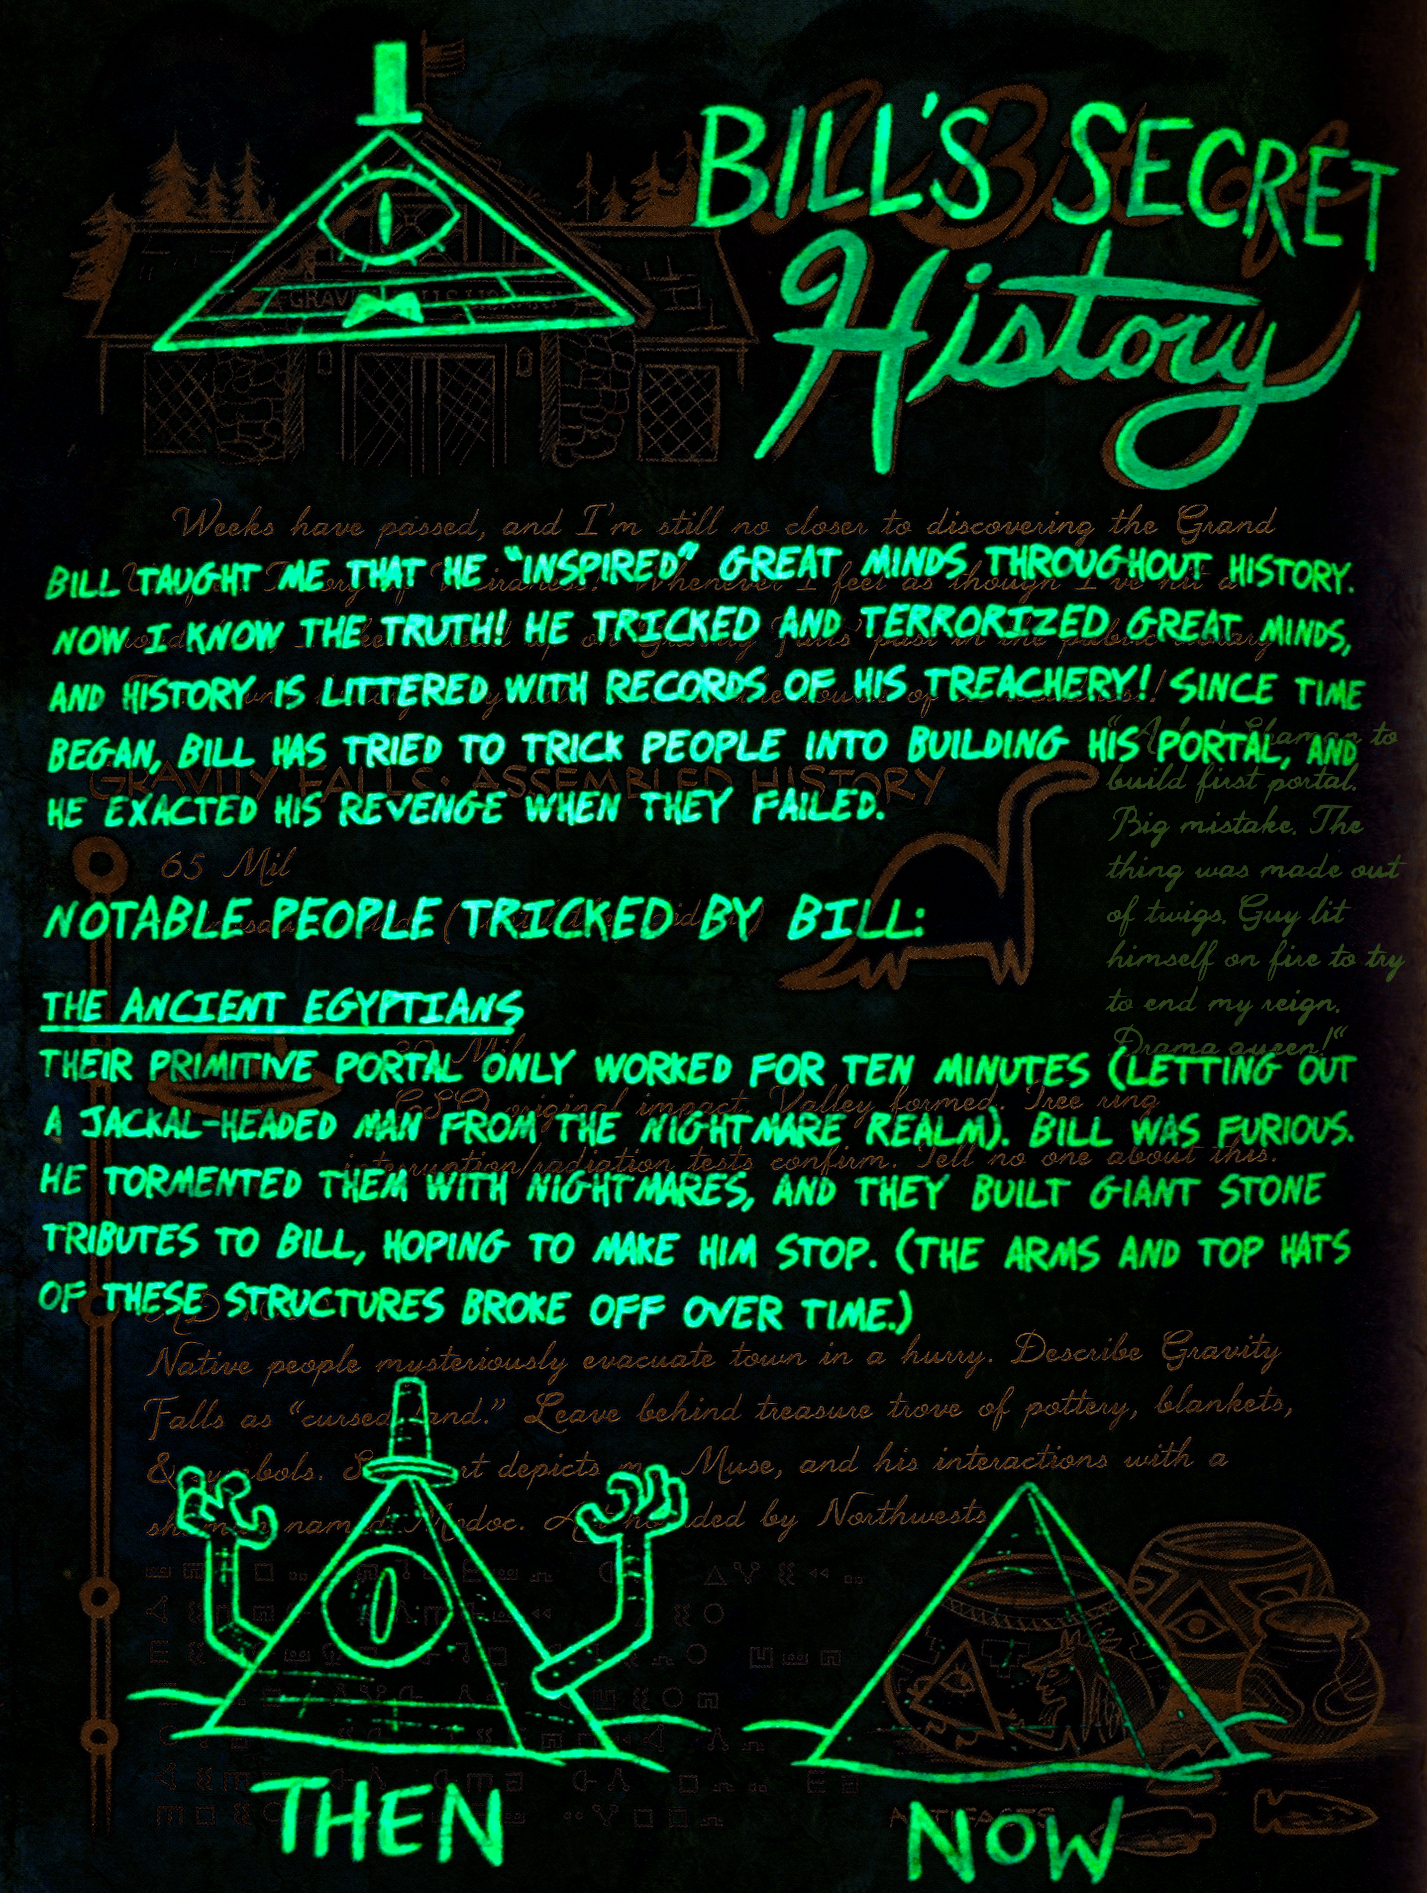 BILL'S SECRET
History
Weeks have passed, and I'm still no closer to discovering the Grand
BILL TAUGHT ME THAT HE "INSPIRED" GREAT MINDS THROUGHOUT HISTORY.
NOW I KNOW THE TRUTH! HE TRICKED AND TERRORIZED GREAT MINDS,
AND HISTORY IS LITTERED WITH RECORDS OF HIS TREACHERY! SINCE TIME
BEGAN, BILL HAS TRIED TO TRICK PEOPLE INTO BUILDING HIS PORTAL, AND
HE EXACTED HIS REVENGE WHEN THEY FAILED.
GRAVITY FALLS: ASSEMBLED HISTORY
65 Mil
Shaman to
build first portal.
Big mistake. The
thing was made out
of twigs. Guy lit
himself on fire to try
to end my reign.
Drama queen!"
NOTABLE PEOPLE TRICKED BY BILL:
THE ANCIENT EGYPTIANS
THEIR PRIMITIVE PORTAL ONLY WORKED FOR TEN MINUTES (LETTING OUT
original impact. Valley formed. Tree ring
A JACKAL-HEADED MAN FROM THE NIGHTMARE REALM). BILL WAS FURIOUS.
interruption/radiation tests confirm. Tell no one about this.
HE TORMENTED THEM WITH NIGHTMARES, AND THEY BUILT GIANT STONE
TRIBUTES TO BILL, HOPING TO MAKE HIM STOP. (THE ARMS AND TOP HATS
OF THESE STRUCTURES BROKE OFF OVER TIME.)
Native people mysteriously evacuate town in a hurry. Describe Gravity
Falls as "cursed land." Leave behind treasure trove of pottery, blankets,
& symbols. art depicts my Muse, and his interactions with a
shaman named Modoc. by Northwests
ARTIFACTS
THEN
NOW